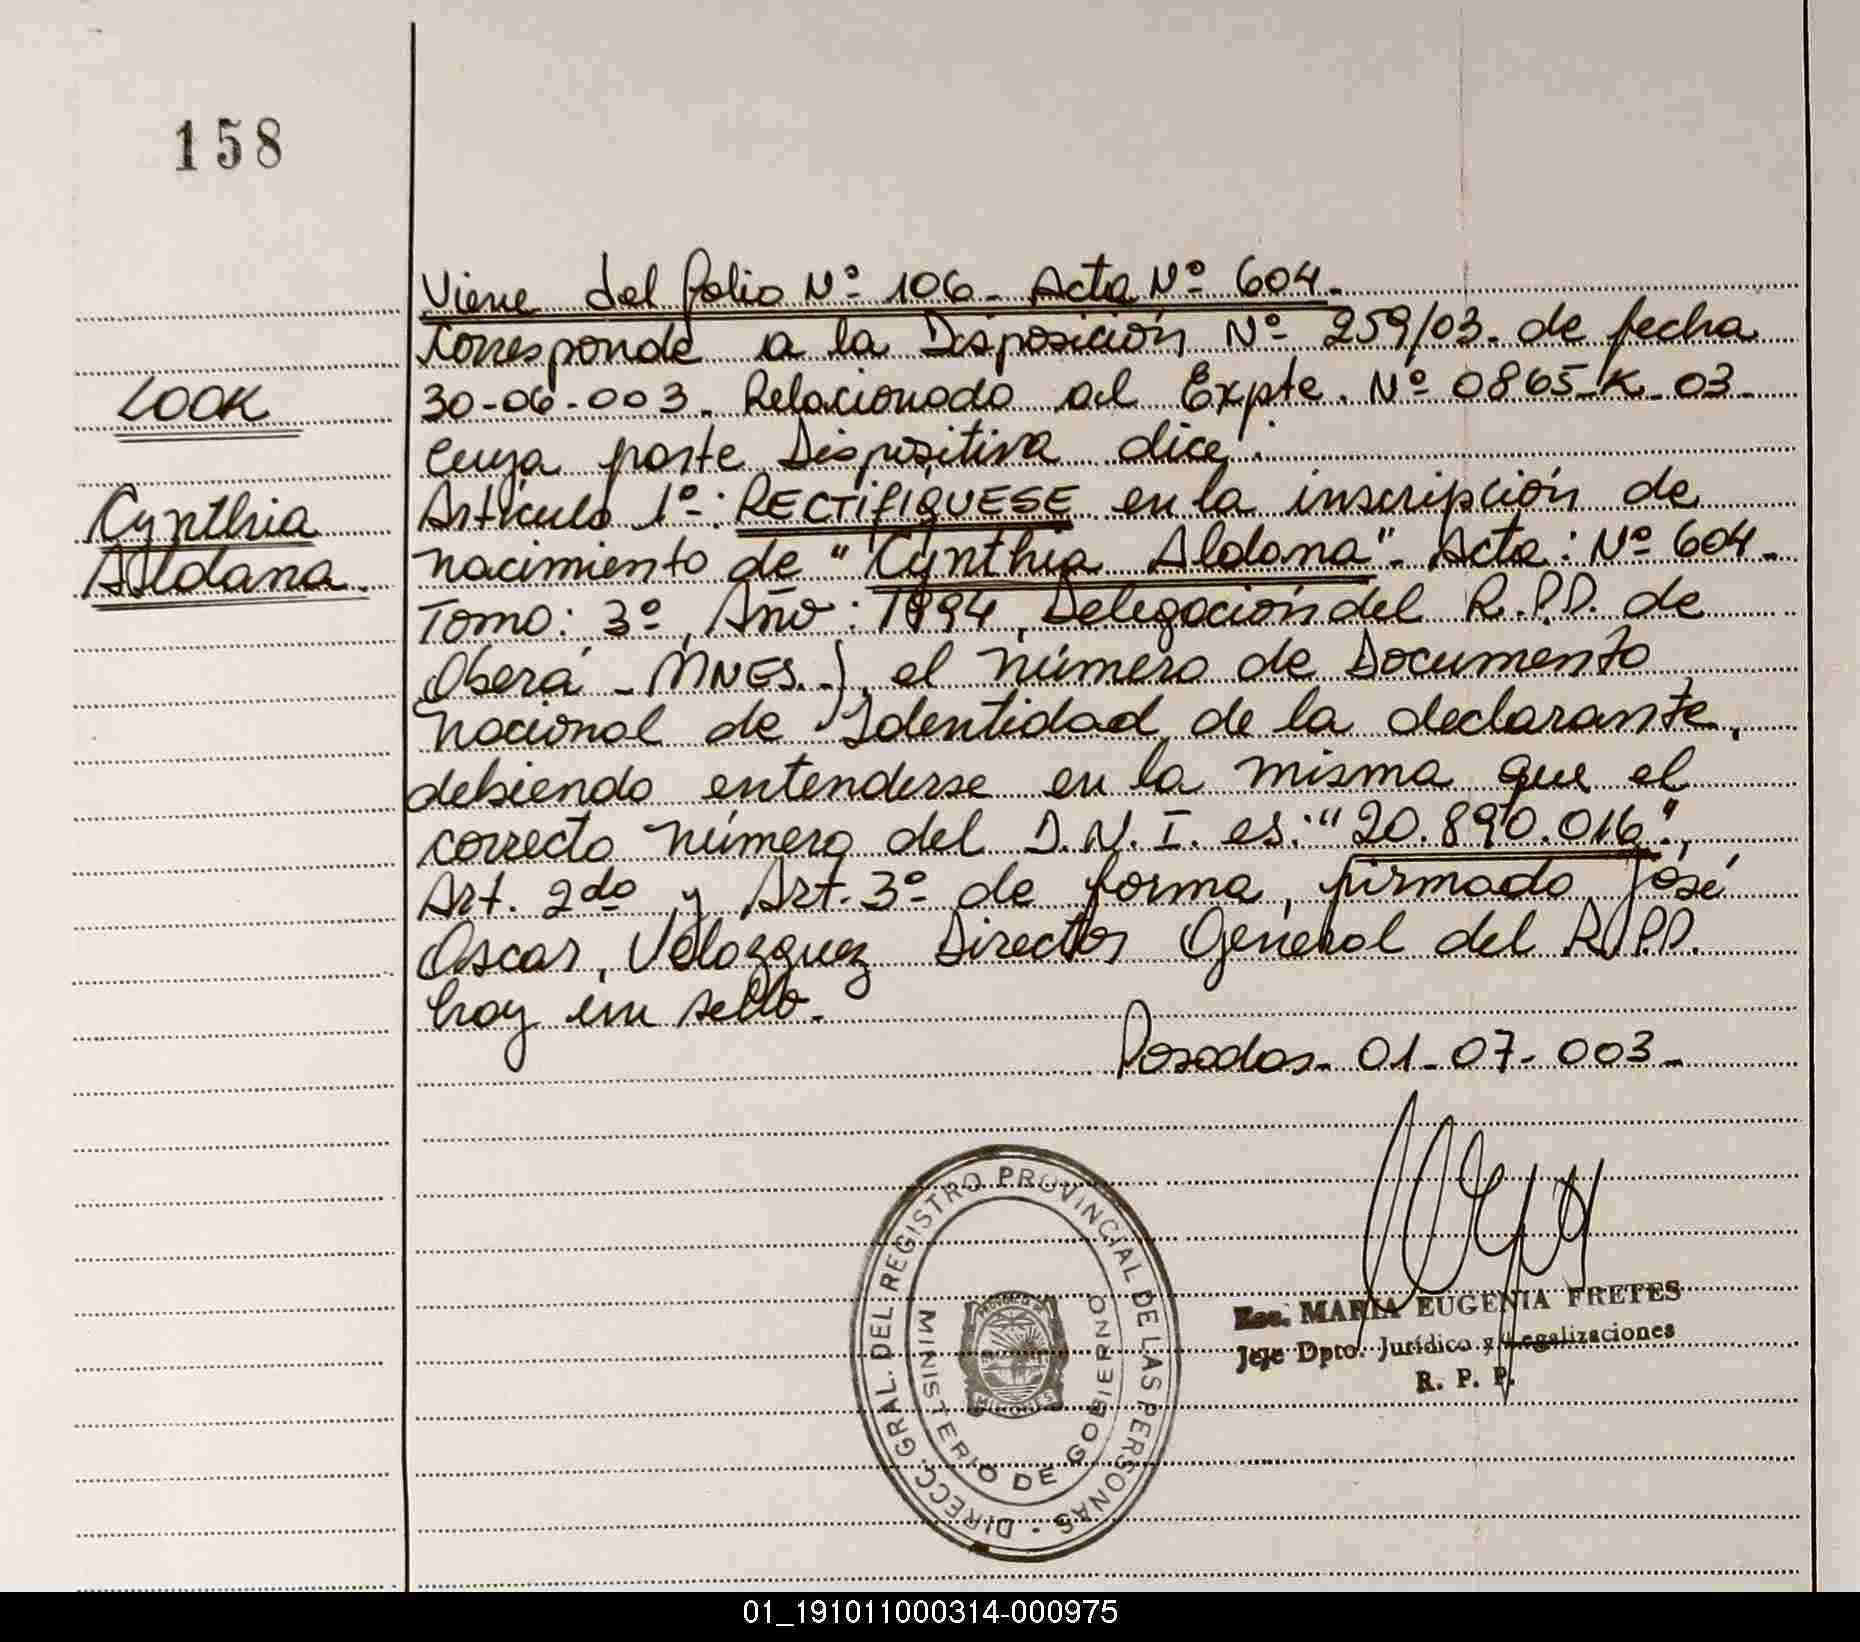 158
Viene del folio Nº 106 - Acta Nº 604.-
Corresponde a la Disposición Nº 259/03. de fecha
LOOK
30-06-003. Relacionado al Expte. Nº 0865-K-03-
Cuya parte Dispositiva dice:
Cynthia
Artículo 1º: RECTIFIQUESE en la inscripción de
Aldana.
nacimiento de "Cynthia Aldana". Acta: Nº 604-
Tomo: 3º, Año: 1994, Delegación del R.P.P. de
Oberá - MNES.-), el número de Documento
Nacional de Identidad de la declarante,
debiendo entenderse en la misma que el
correcto número del D.N.I. es: "20.890.016".
Art. 2do y Art. 3º de forma, firmado José
Oscar, Velazquez Director General del R.P.P.
hay un sello.
Posadas - 01-07-003-
DIRECC. GRAL. DEL REGISTRO PROVINCIAL DE LAS PERSONAS -
MINISTERIO DE GOBIERNO
PROVINCIA DE
MISIONES
Esc. MARIA EUGENIA FRETES
Jefe Dpto. Jurídico y Legalizaciones
R. P. P.
01_191011000314-000975